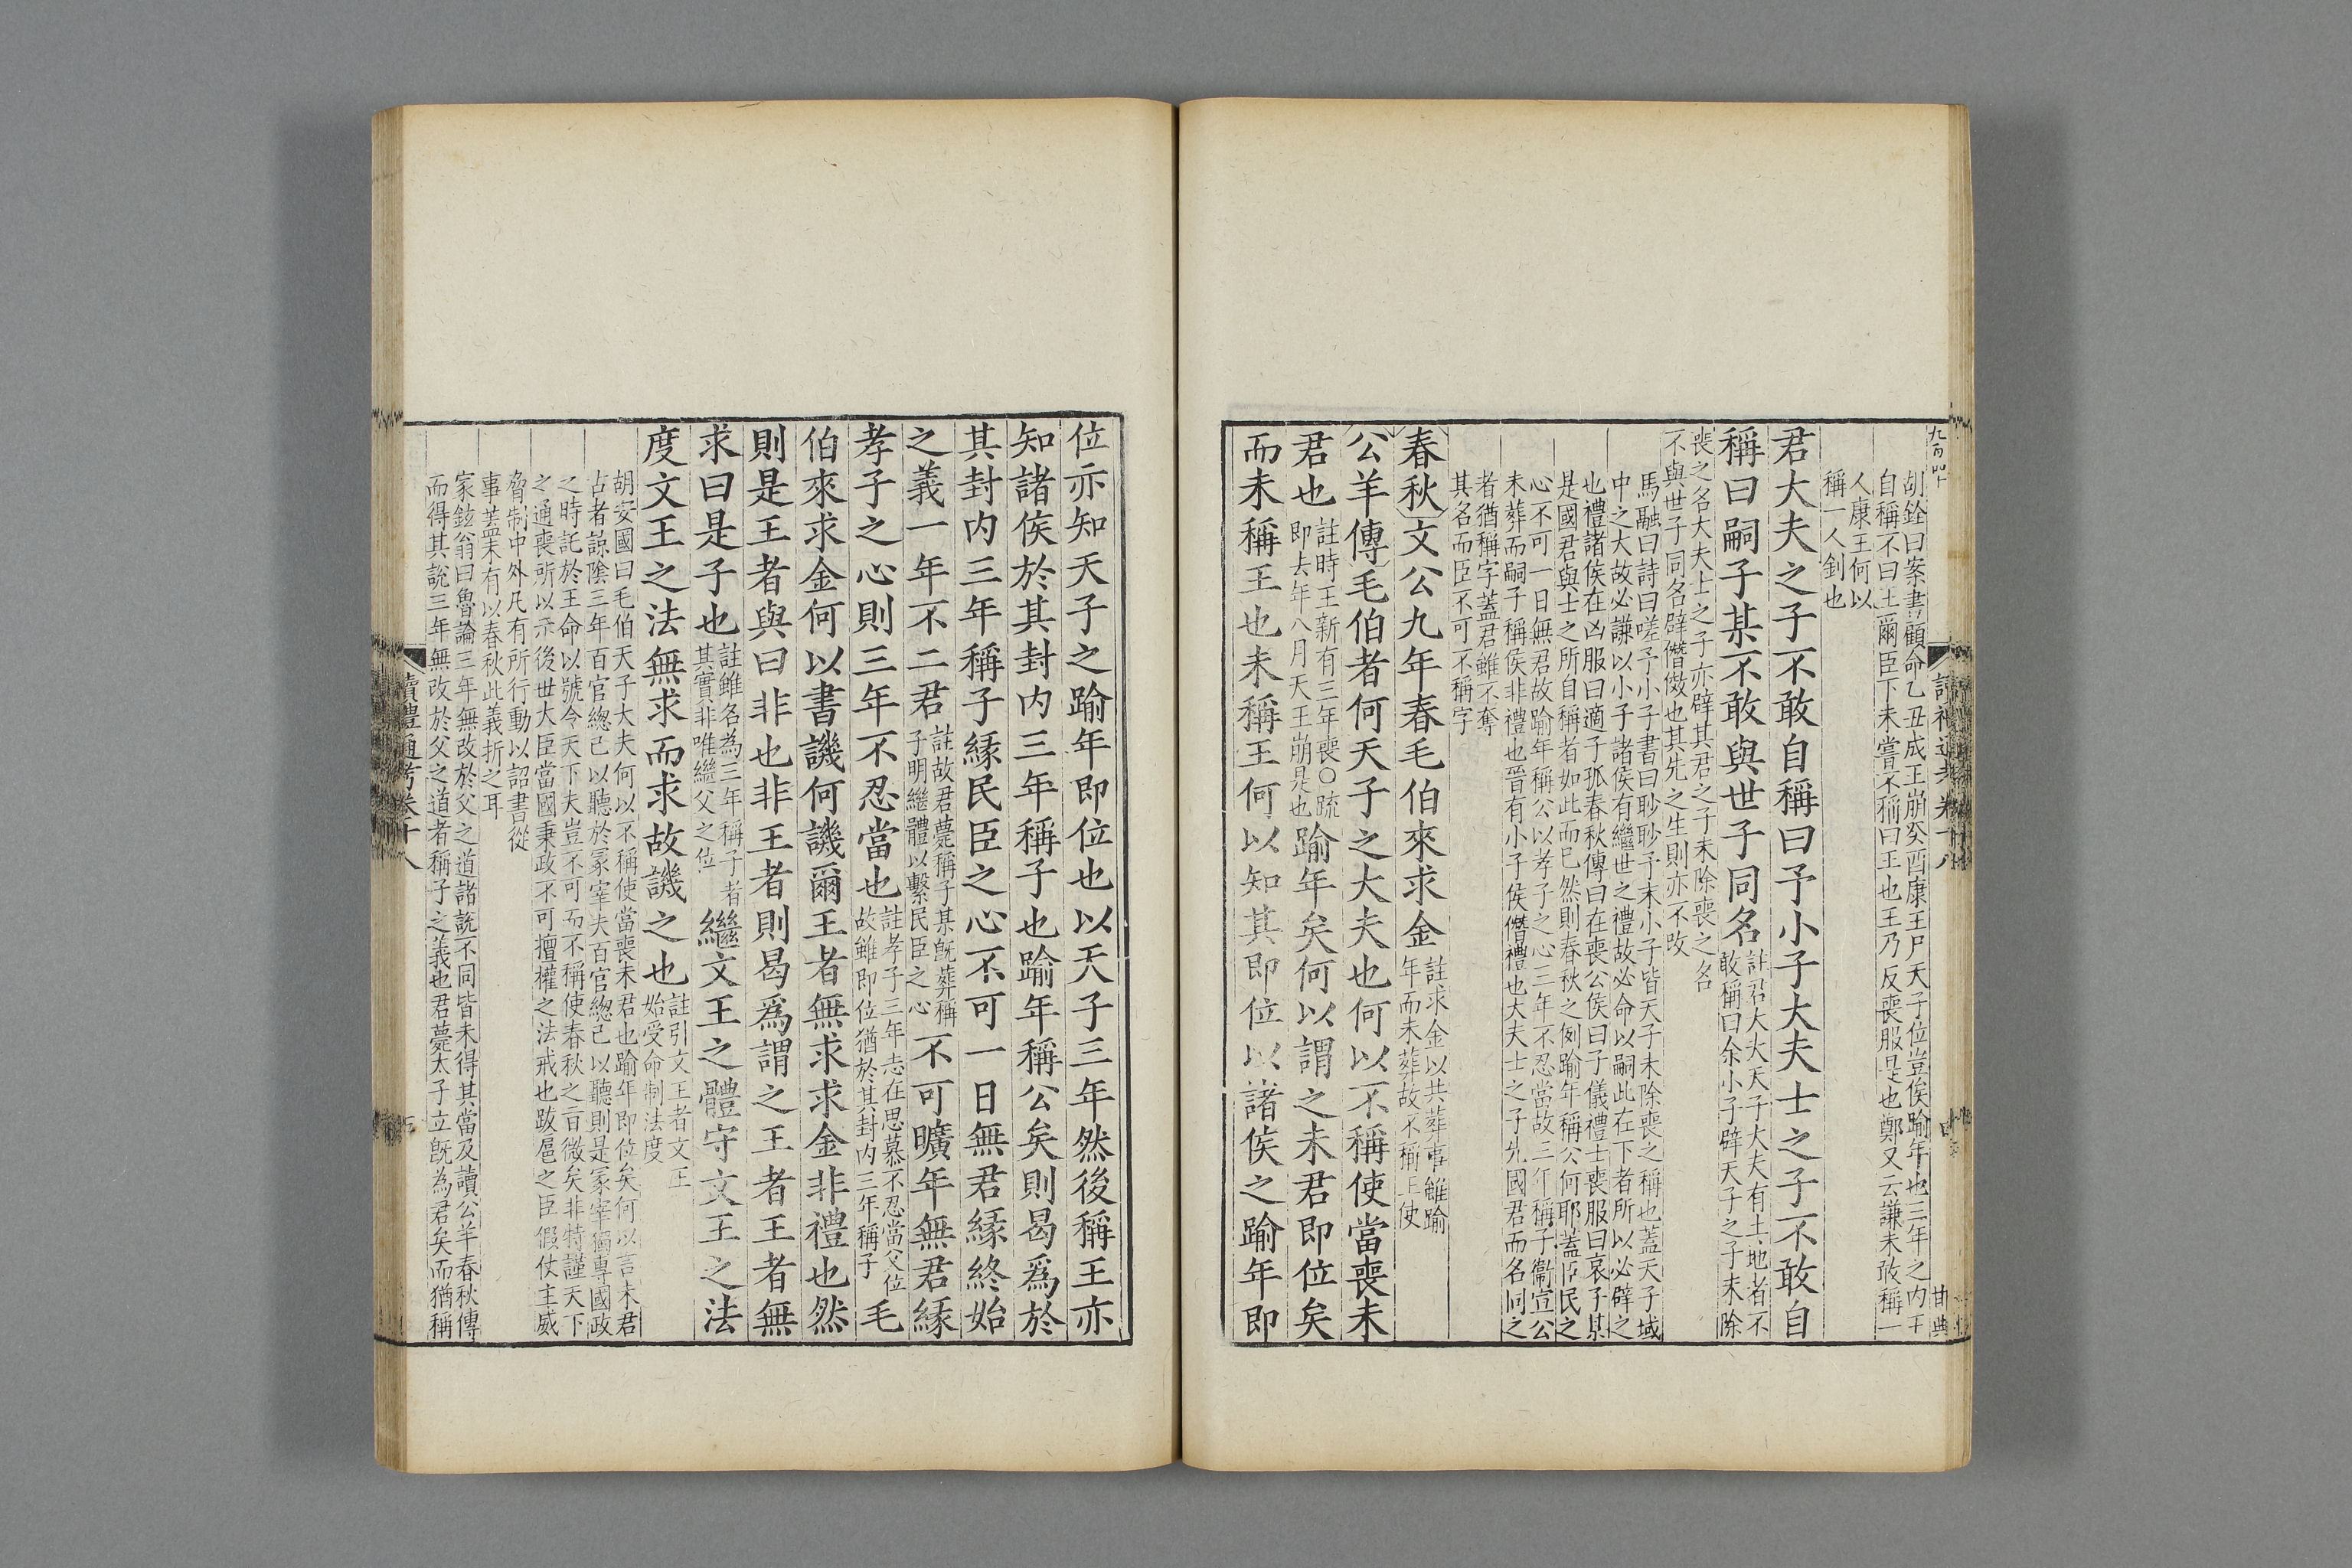 胡銓曰案書顧命乙丑成王崩癸酉康王尸天子位豈俟踰年也三年之内王
自稱不曰王爾臣下未嘗不稱曰王也王乃反喪服是也鄭又云謙未敢稱一
人康王何以
稱一人釗也
君大夫之子不敢自稱曰予小子大夫士之子不敢自
稱曰嗣子某不敢與世子同名
註君大夫天子大夫有土地者不
敢稱曰余小子辟天子之子未除
喪之名大夫士之子亦辟其君之子未除喪之名
不與世子同名辟僭傚也其先之生則亦不改
馬融曰詩曰嗟予小子書曰眇眇予末小子皆天子未除喪之稱也蓋天子域
中之大故必謙以小子諸侯有繼世之禮故必命以嗣此在下者所以必辟之
也禮諸侯在凶服曰適子孤春秋傳曰在喪公侯曰子儀禮士喪服曰哀子某
是國君與士之所自稱者如此而已然則春秋之例踰年稱公何耶蓋臣民之
心不可一日無君故踰年稱公以孝子之心三年不忍當故三年稱子衞宣公
未葬而嗣子稱侯非禮也晉有小子侯僭禮也大夫士之子先國君而名同之
者猶稱字蓋君雖不奪
其名而臣不可不稱字
春秋文公九年春毛伯來求金
註求金以共葬事雖踰
年而未葬故不稱王使
公羊傳毛伯者何天子之大夫也何以不稱使當喪未
君也
註時王新有三年喪○疏
即去年八月天王崩是也
踰年矣何以謂之未君即位矣
而未稱王也未稱王何以知其即位以諸侯之踰年即
讀禮通考卷十八
位亦知天子之踰年即位也以天子三年然後稱王亦
知諸侯於其封内三年稱子也踰年稱公矣則曷爲於
其封内三年稱子緣民臣之心不可一日無君緣終始
之義一年不二君
註故君薨稱子某旣葬稱
子明繼體以繫民臣之心
不可曠年無君緣
孝子之心則三年不忍當也
註孝子三年志在思慕不忍當父位
故雖即位猶於其封内三年稱子
毛
伯來求金何以書譏何譏爾王者無求求金非禮也然
則是王者與曰非也非王者則曷爲謂之王者王者無
求曰是子也
註雖名為三年稱子者
其實非唯繼父之位
繼文王之體守文王之法
度文王之法無求而求故譏之也
註引文王者文王
始受命制法度
胡安國曰毛伯天子大夫何以不稱使當喪未君也踰年即位矣何以言未君
古者諒陰三年百官總己以聽於冢宰夫百官總己以聽則是冢宰獨專國政
之時託於王命以號令天下夫豈不可而不稱使春秋之㫖微矣非特謹天下
之通喪所以示後世大臣當國秉政不可擅權之法戒也跋扈之臣假仗主威
脅制中外凡有所行動以詔書從
事葢未有以春秋此義折之耳
家鉉翁曰魯論三年無改於父之道諸說不同皆未得其當及讀公羊春秋傳
而得其說三年無改於父之道者稱子之義也君薨太子立旣為君矣而猶稱
讀禮通考卷十八